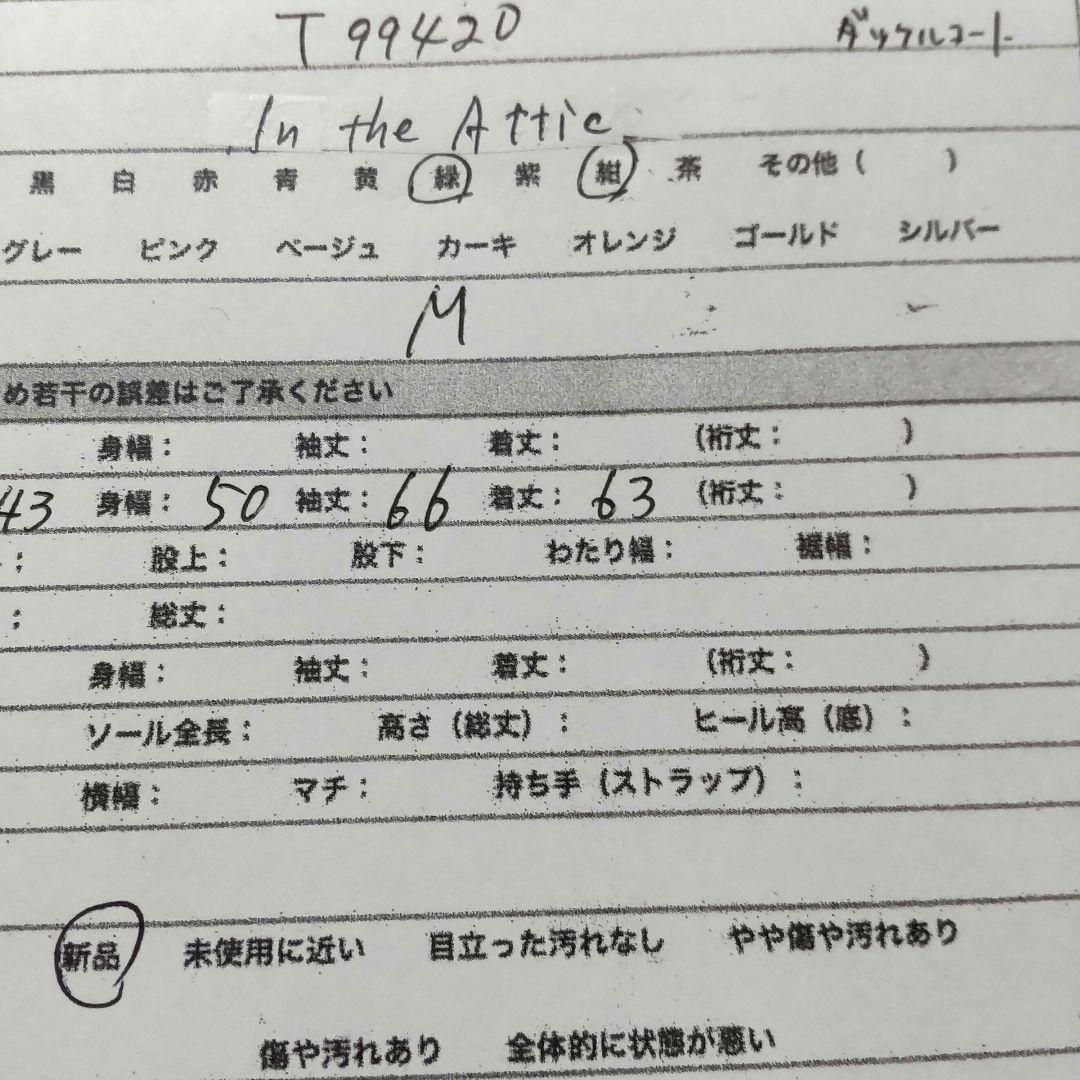 T99420 ダッフルコート
In the Attic
黒 白 赤 青 黄 緑 紫 紺 茶 その他( )
グレー ピンク ベージュ カーキ オレンジ ゴールド シルバー
M
め若干の誤差はご了承ください
身幅: 袖丈: 着丈: (裄丈: )
43 身幅: 50 袖丈: 66 着丈: 63 (裄丈: )
: 股上: 股下: わたり幅: 裾幅:
: 総丈:
身幅: 袖丈: 着丈: (裄丈: )
ソール全長: 高さ(総丈): ヒール高(底):
横幅: マチ: 持ち手(ストラップ):
新品 未使用に近い 目立った汚れなし やや傷や汚れあり
傷や汚れあり 全体的に状態が悪い